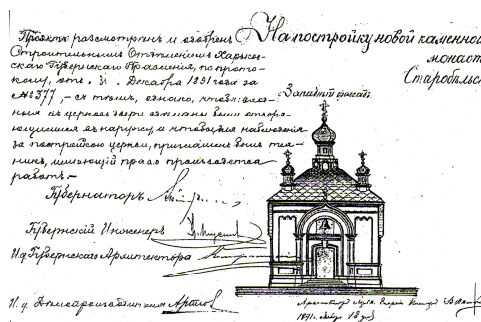 Проектъ разсмотренъ и одобренъ
Строительнымъ Отделениемъ Харьков-
скаго Губернскаго Правления, по прото-
колу, отъ 31 Декабря 1891 года за
№ 377, – съ темъ, однако, чтобы вход-
ныя въ церковь двери сделаны были отворя-
ющимися въ наружу и чтобы для наблюдения
за постройкою церкви, приглашенъ былъ тех-
никъ, имеющий право производства
работъ –
Губернаторъ
Губернский Инженеръ
И.д. Губернскаго Архитектора
И. д. Делопроизводителя
На постройку новой каменной
монаст
Старобельс
Западный фасадъ.
Архитекторъ
1891. 18